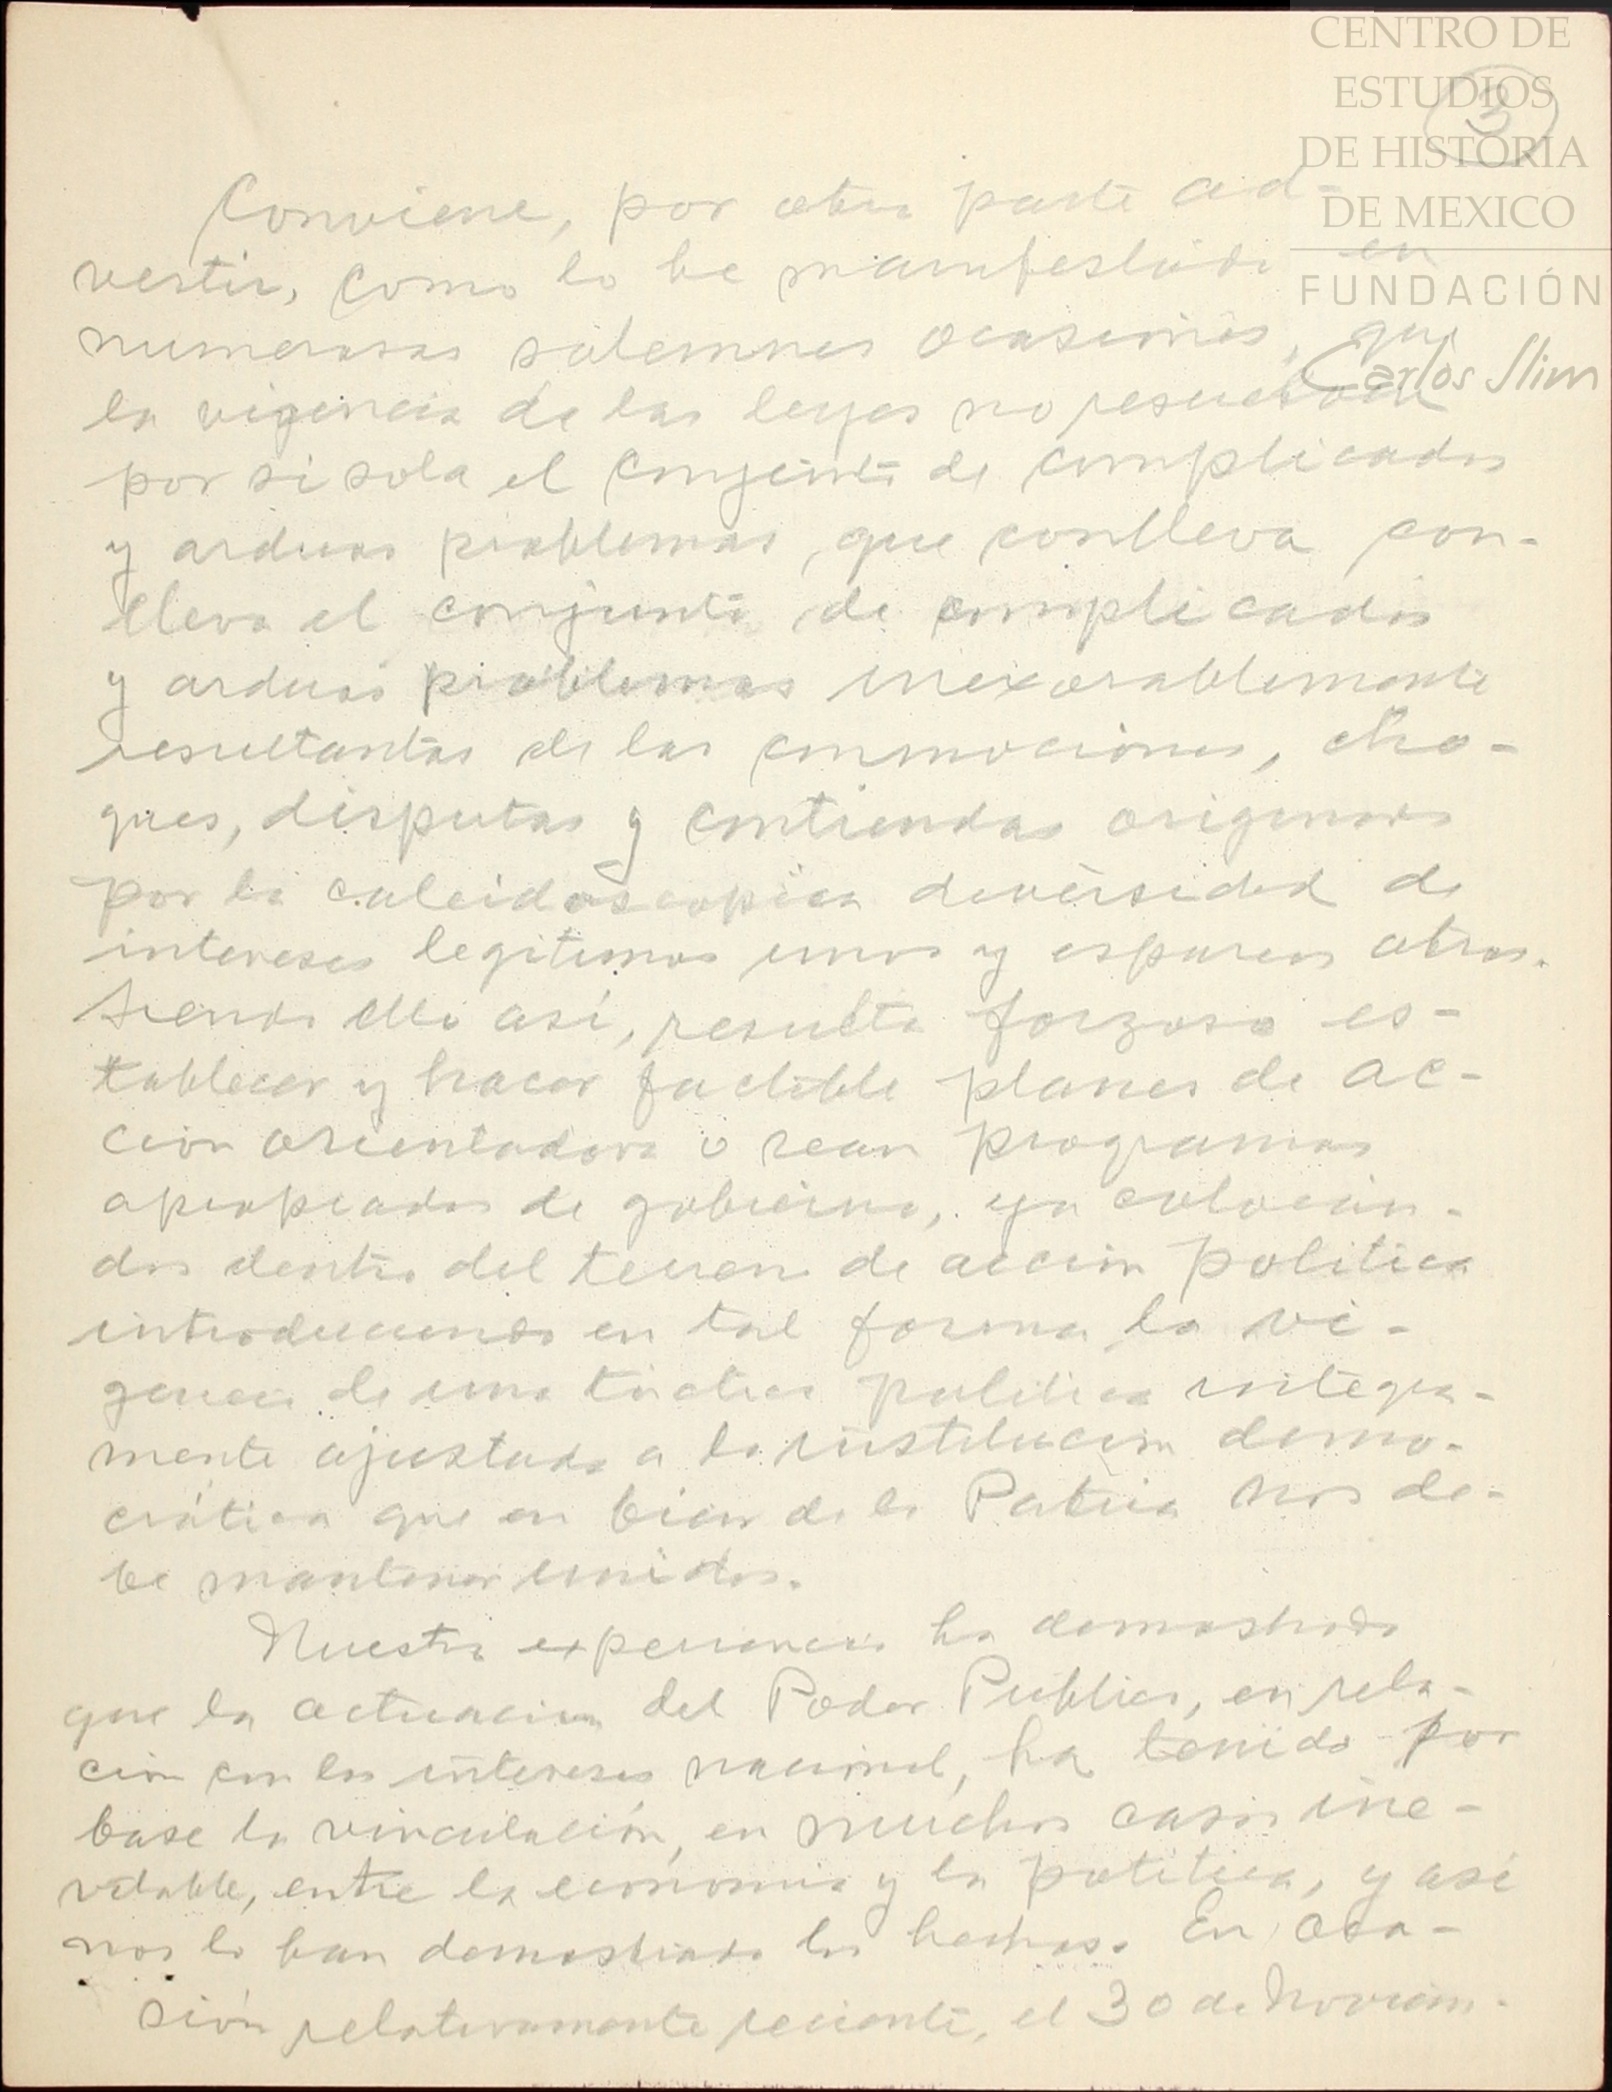 CENTRO DE
ESTUDIOS
DE HISTORIA
DE MEXICO
FUNDACIÓN
Carlos Slim
3
Conviene, por otra parte ad-
vertir, como lo he manifestado en
numerosas solemnes ocasiones, que
la vigencia de las leyes no resuelve
por si sola el conjunto de complicados
y arduos problemas, que conlleva con-
lleva el conjunto de complicados
y arduos problemas inexorablemente
resultantes de las conmociones, cho-
ques, disputas y contiendas origenados
por la caleidoscopica diversidad de
intereses legitimos unos y espureos otros.
Siendo ello así, resulta forzoso es-
tablecer y hacer factible planes de ac-
cion orientadora o sean programas
apropiados de gobierno, ya colocan-
dos dentro del terreno de accion politica
introduciendo en tal forma la vi-
gencia de una tactica politica integra-
mente ajustada a la institucion demo-
crática que en bien de la Patria nos de-
be mantener unidos.
Nuestra experiencia ha demostrado
que la actuacion del Poder Publico, en rela-
cion con los intereses nacional, ha tenido por
base la vinculación, en muchos casos ine-
vitable, entre la economia y la politica, y asi
nos lo han demostrado los hechos. En oca-
sión relativamente reciente, el 30 de Noviem-